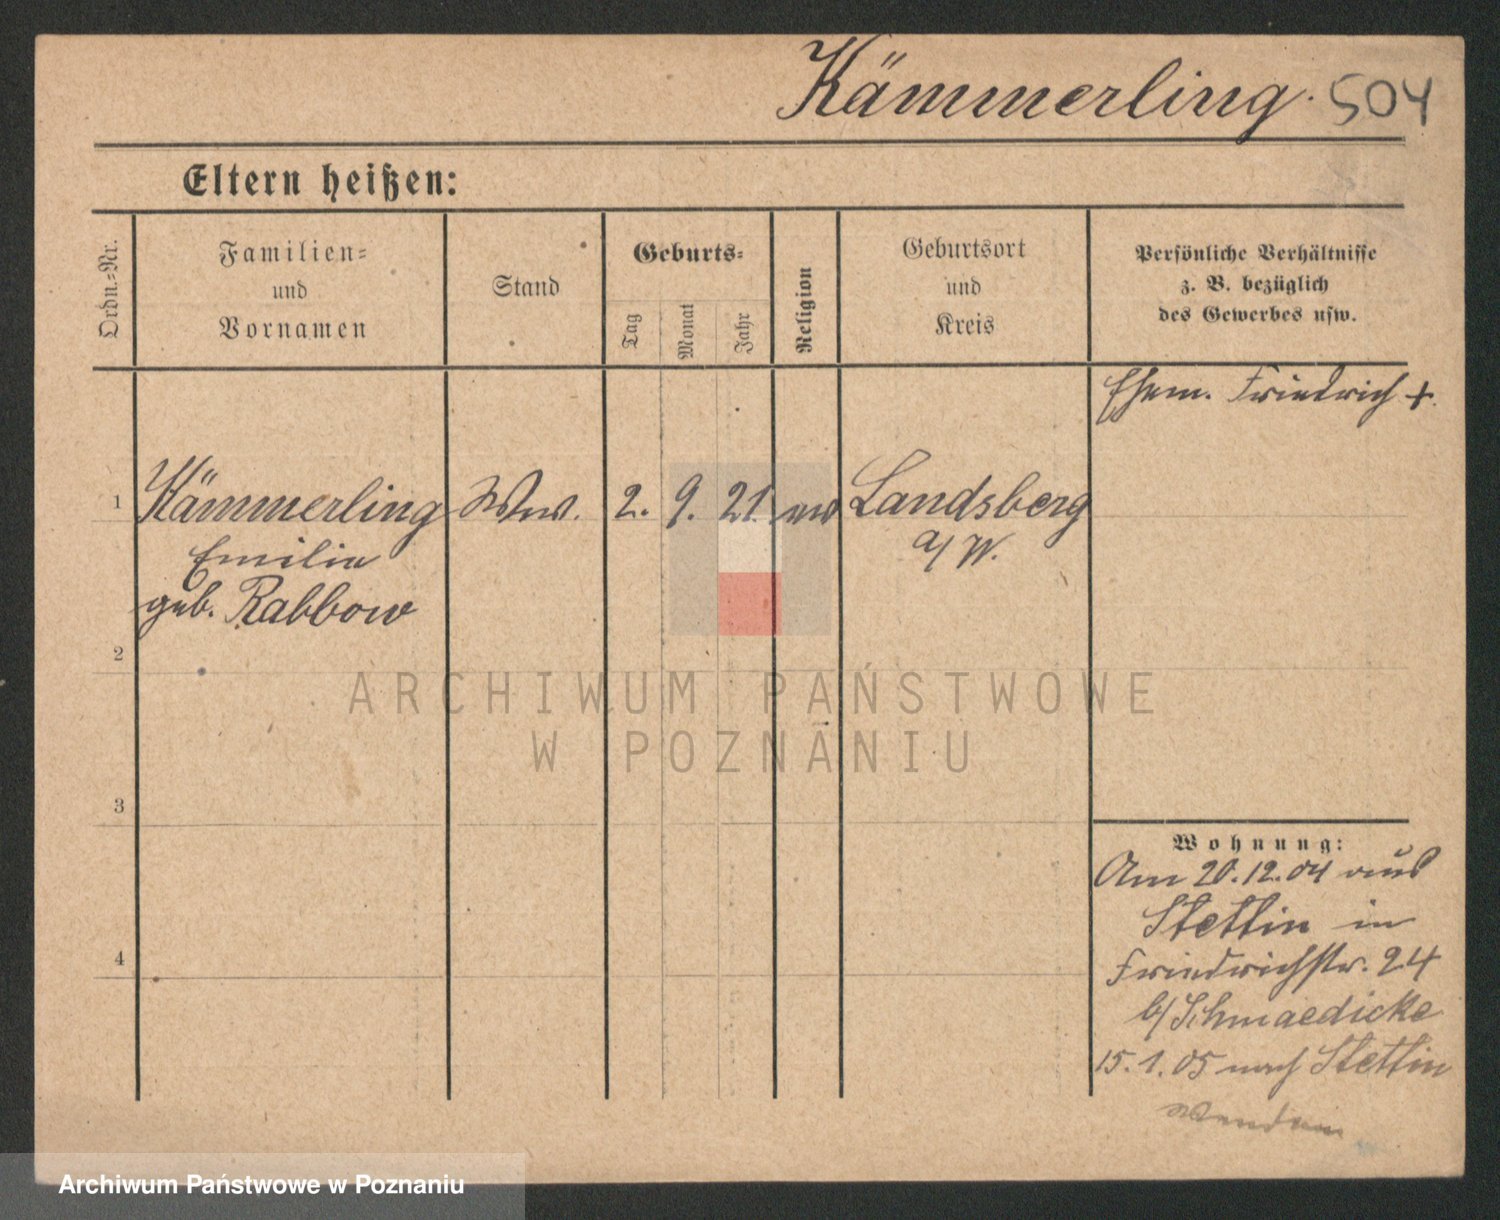 Kämmerling. 504
Eltern heißen:
Ordn.-Nr.
Familien-
und
Vornamen
Stand
Geburts-
Tag
Monat
Jahr
Religion
Geburtsort
und
Kreis
Persönliche Verhältnisse
z. B. bezüglich
des Gewerbes usw.
Ehem. Friedrich +.
1 Kämmerling Ww. 2. 9. 21. ev Landsberg
a/W.
Emilie
geb. Rabbow
2
3
4
Wohnung:
Am 20.12.04 aus
Stettin in
Friedrichstr. 24
b/Schmaedicke
15.1.05 nach Stettin
ARCHIWUM PAŃSTWOWE
W POZNANIU
Archiwum Państwowe w Poznaniu